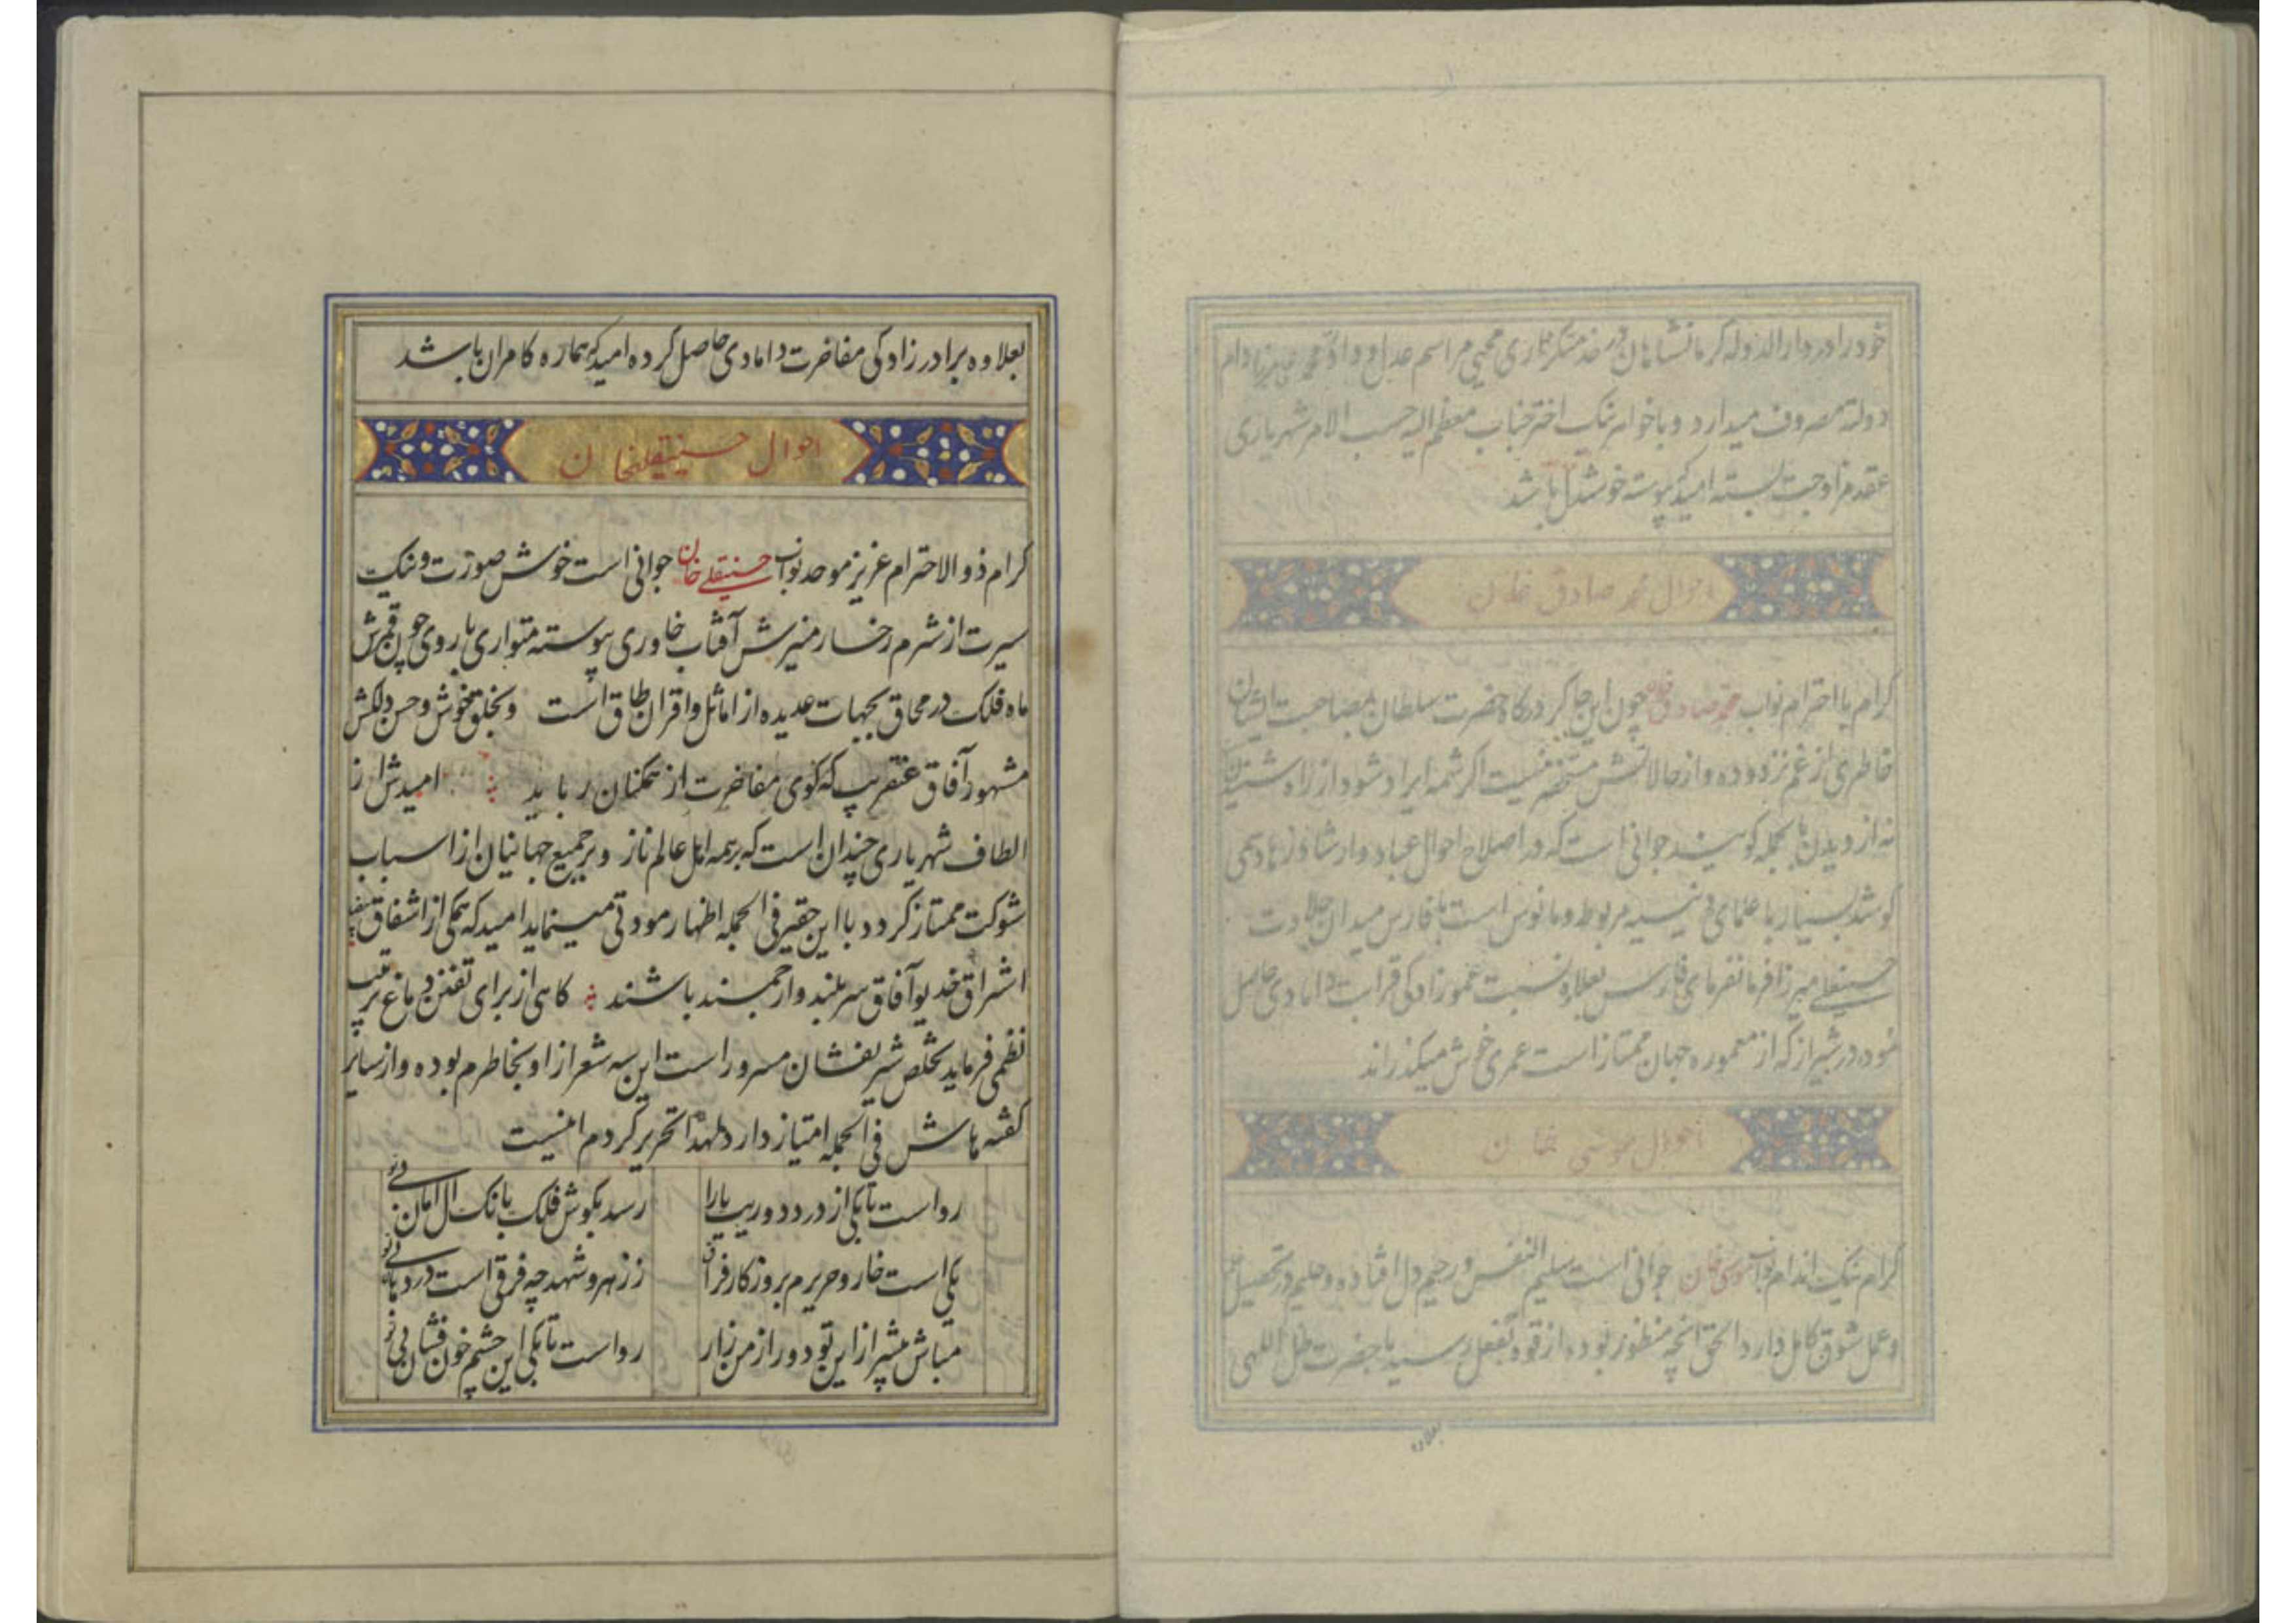 خود را در دارالدوله کرمانشاهان در خدمتکزاری محیی مراسم عدل و داد محمد علی میرزا دام
دولته مصروف میدارد و با خواهر نیک اختر جناب معظم الیه حسب الامر شهریاری
عقد مزاوجت بسته امید که پیوسته خوشدل باشد
احوال محمد صادق خان
کرام با احترام نواب محمد صادق خان چون این چاکر درکاه حضرت سلطان بمصاحبت ایشان
خاطری از غم نزدوده و از حالاتش مستحضر نیست اکر شمه ایراد شود از راه شنیدن
نه از دیدن بالجمله کویند جوانی است که در اصلاح احوال عباد و ارشاد زهاد همی
کوشد بسیار با علمای دینیه مربوط و مانوس است با فارس میدان جلادت
حسینعلی میرزا فرمانفرمای فارس بعلاوه نسبت عموزادکی قرابت دامادی حاصل
نموده در شیراز که از معموره جهان ممتاز است عمری خوش میکذراند
احوال موسی خان
کرام نیک اندام نواب موسی خان جوانی است سلیم النفس و رحیم دل افتاده و حلیم در تحصیل علم
و عمل شوق کامل دارد الحق انچه منظور بوده از قوه بفعل رسید با حضرت ظل اللهی
بعلاوه
بعلاوه برادرزادکی مفاخرت دامادی حاصل کرده امید که هماره کامران باشد
احوال حسینقلیخان
کرام ذوالاحترام عزیز موحد نواب حسینقلی خان جوانی است خوش صورت و نیک
سیرت از شرم رخسار منیرش آفتاب خاوری پیوسته متواری با روی چون قمرش
ماه فلک در محاق بجهات عدیده از اماثل و اقران طاق است و بخلق خوش و حسن دلکش
مشهور آفاق عنقریب که کوی مفاخرت از همکنان رباید امیدش از
الطاف شهریاری چندان است که بر همه اهل عالم ناز و بر جمیع جهانیان از اسباب
شوکت ممتاز کردد با این حقیر فی الجمله اظهار مودتی مینماید امید که همکی از اشفاق
اشراق خدیو آفاق سربلند و ارجمند باشند کاهی از برای تفنن دماغ ترتیب
نظمی فرماید تخلص شریفشان مسرور است این سه شعر از او بخاطرم بوده و از سایر
کفته هاش فی الجمله امتیاز دارد لهذا تحریر کردم اینست
روا است تا بکی از درد دوریت یارا رسد بکوش فلک بانک الامان بی تو
یکی است خار و حریرم بروزکار فراق ز زهر و شهد چه فرقی است در دهان بی تو
مباش بیشتر از این تو دور از من زار روا است تا بکی این چشم خون فشان بی تو